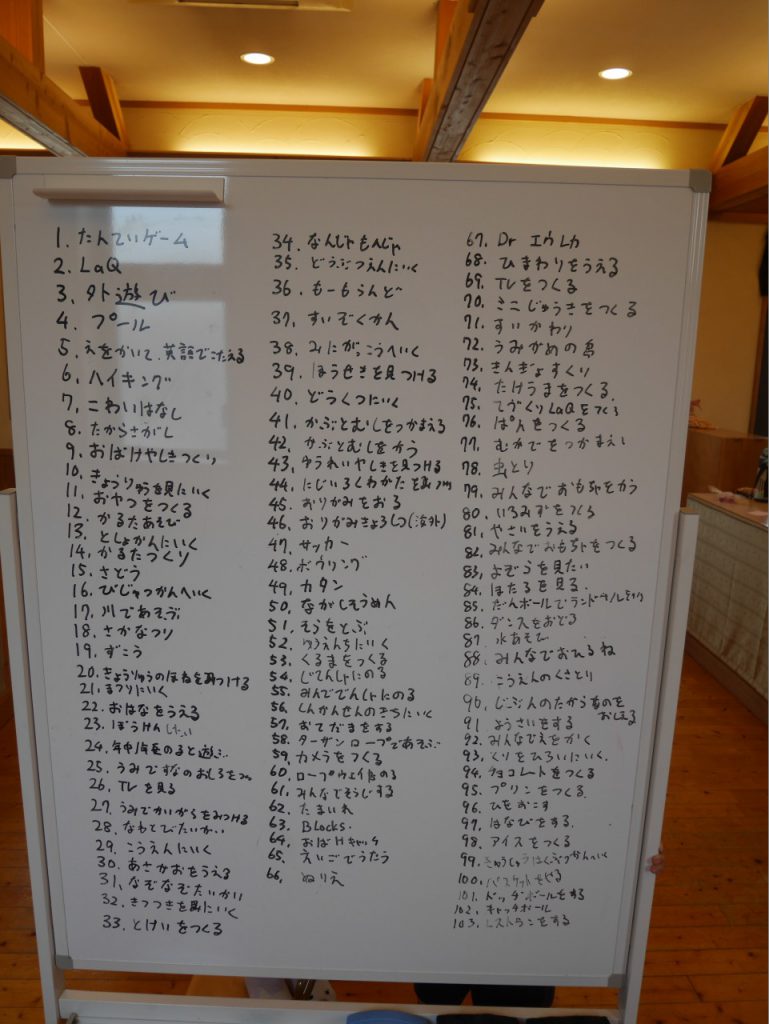 1. たんていゲーム
2. LaQ
3. 外遊び
4. プール
5. えをかいて、英語でこたえる
6. ハイキング
7. こわいはなし
8. たからさがし
9. おばけやしきつくり
10. きょうりゅうを見にいく
11. おやつをつくる
12. かるたあそび
13. としょかんにいく
14. かるたづくり
15. さどう
16. びじゅつかんへいく
17. 川であそぶ
18. さかなつり
19. ずこう
20. きょうりゅうのほねを見つける
21. まつりにいく
22. おはなをうえる
23. ぼうけん
24. 年中/年長のるると遊ぶ
25. うみですなのおしろを
26. TVを見る
27. うみでかいがらをみつける
28. なわとびたいかい
29. こうえんにいく
30. あさがおをうえる
31. なぞなぞたいかい
32. きつつきを見にいく
33. とけいをつくる
34. なんじゃもんじゃ
35. どうぶつえんにいく
36. もーもらんど
37. すいぞくかん
38. みにがっこうへいく
39. ほうせきを見つける
40. どうくつにいく
41. かぶとむしをつかまえる
42. かぶとむしをかう
43. ゆうれいやしきを見つける
44. にじいろくわがたを
45. おりがみをおる
46. おりがみきょうしつ(海外)
47. サッカー
48. ボウリング
49. カタン
50. ながしそうめん
51. そらをとぶ
52. ゆうえんちにいく
53. くるまをつくる
54. じてんしゃにのる
55. みんなででんしゃにのる
56. しんかんせんのきちにいく
57. おてだまをする
58. ターザンロープであそぶ
59. カメラをつくる
60. ロープウェイにのる
61. みんなでそうじする
62. たまいれ
63. Blocks.
64. おばけキャッチ
65. えいごでうたう
66. ぬりえ
67. Dr エウレカ
68. ひまわりをうえる
69. TVをつくる
70. ミニじゅうきをつくる
71. すいかわり
72. うみがめの島
73. きんぎょすくい
74. たけうまをつくる
75. てづくりLaQをつくる
76. ぱんをつくる
77. むかでをつかまえ
78. 虫とり
79. みんなでおもちゃをかう
80. いろみずをつくる
81. やさいをうえる
82. みんなでおもちゃをつくる
83. よぞらを見たい
84. ほたるを見る
85. だんボールでランドセル
86. ダンスをおどる
87. 水あそび
88. みんなでおひるね
89. こうえんのくさとり
90. じぶんのたからものをおしえる
91. ようさいをする
92. みんなでえをかく
93. くりをひろいにいく.
94. チョコレートをつくる
95. プリンをつくる
96. ひをおこす
97. はなびをする.
98. アイスをつくる
99. きゅうしゅうはくぶつかんへいく
100. バスケットをやる
101. ドッヂボールをする
102. キャッチボール
103. レストランをする